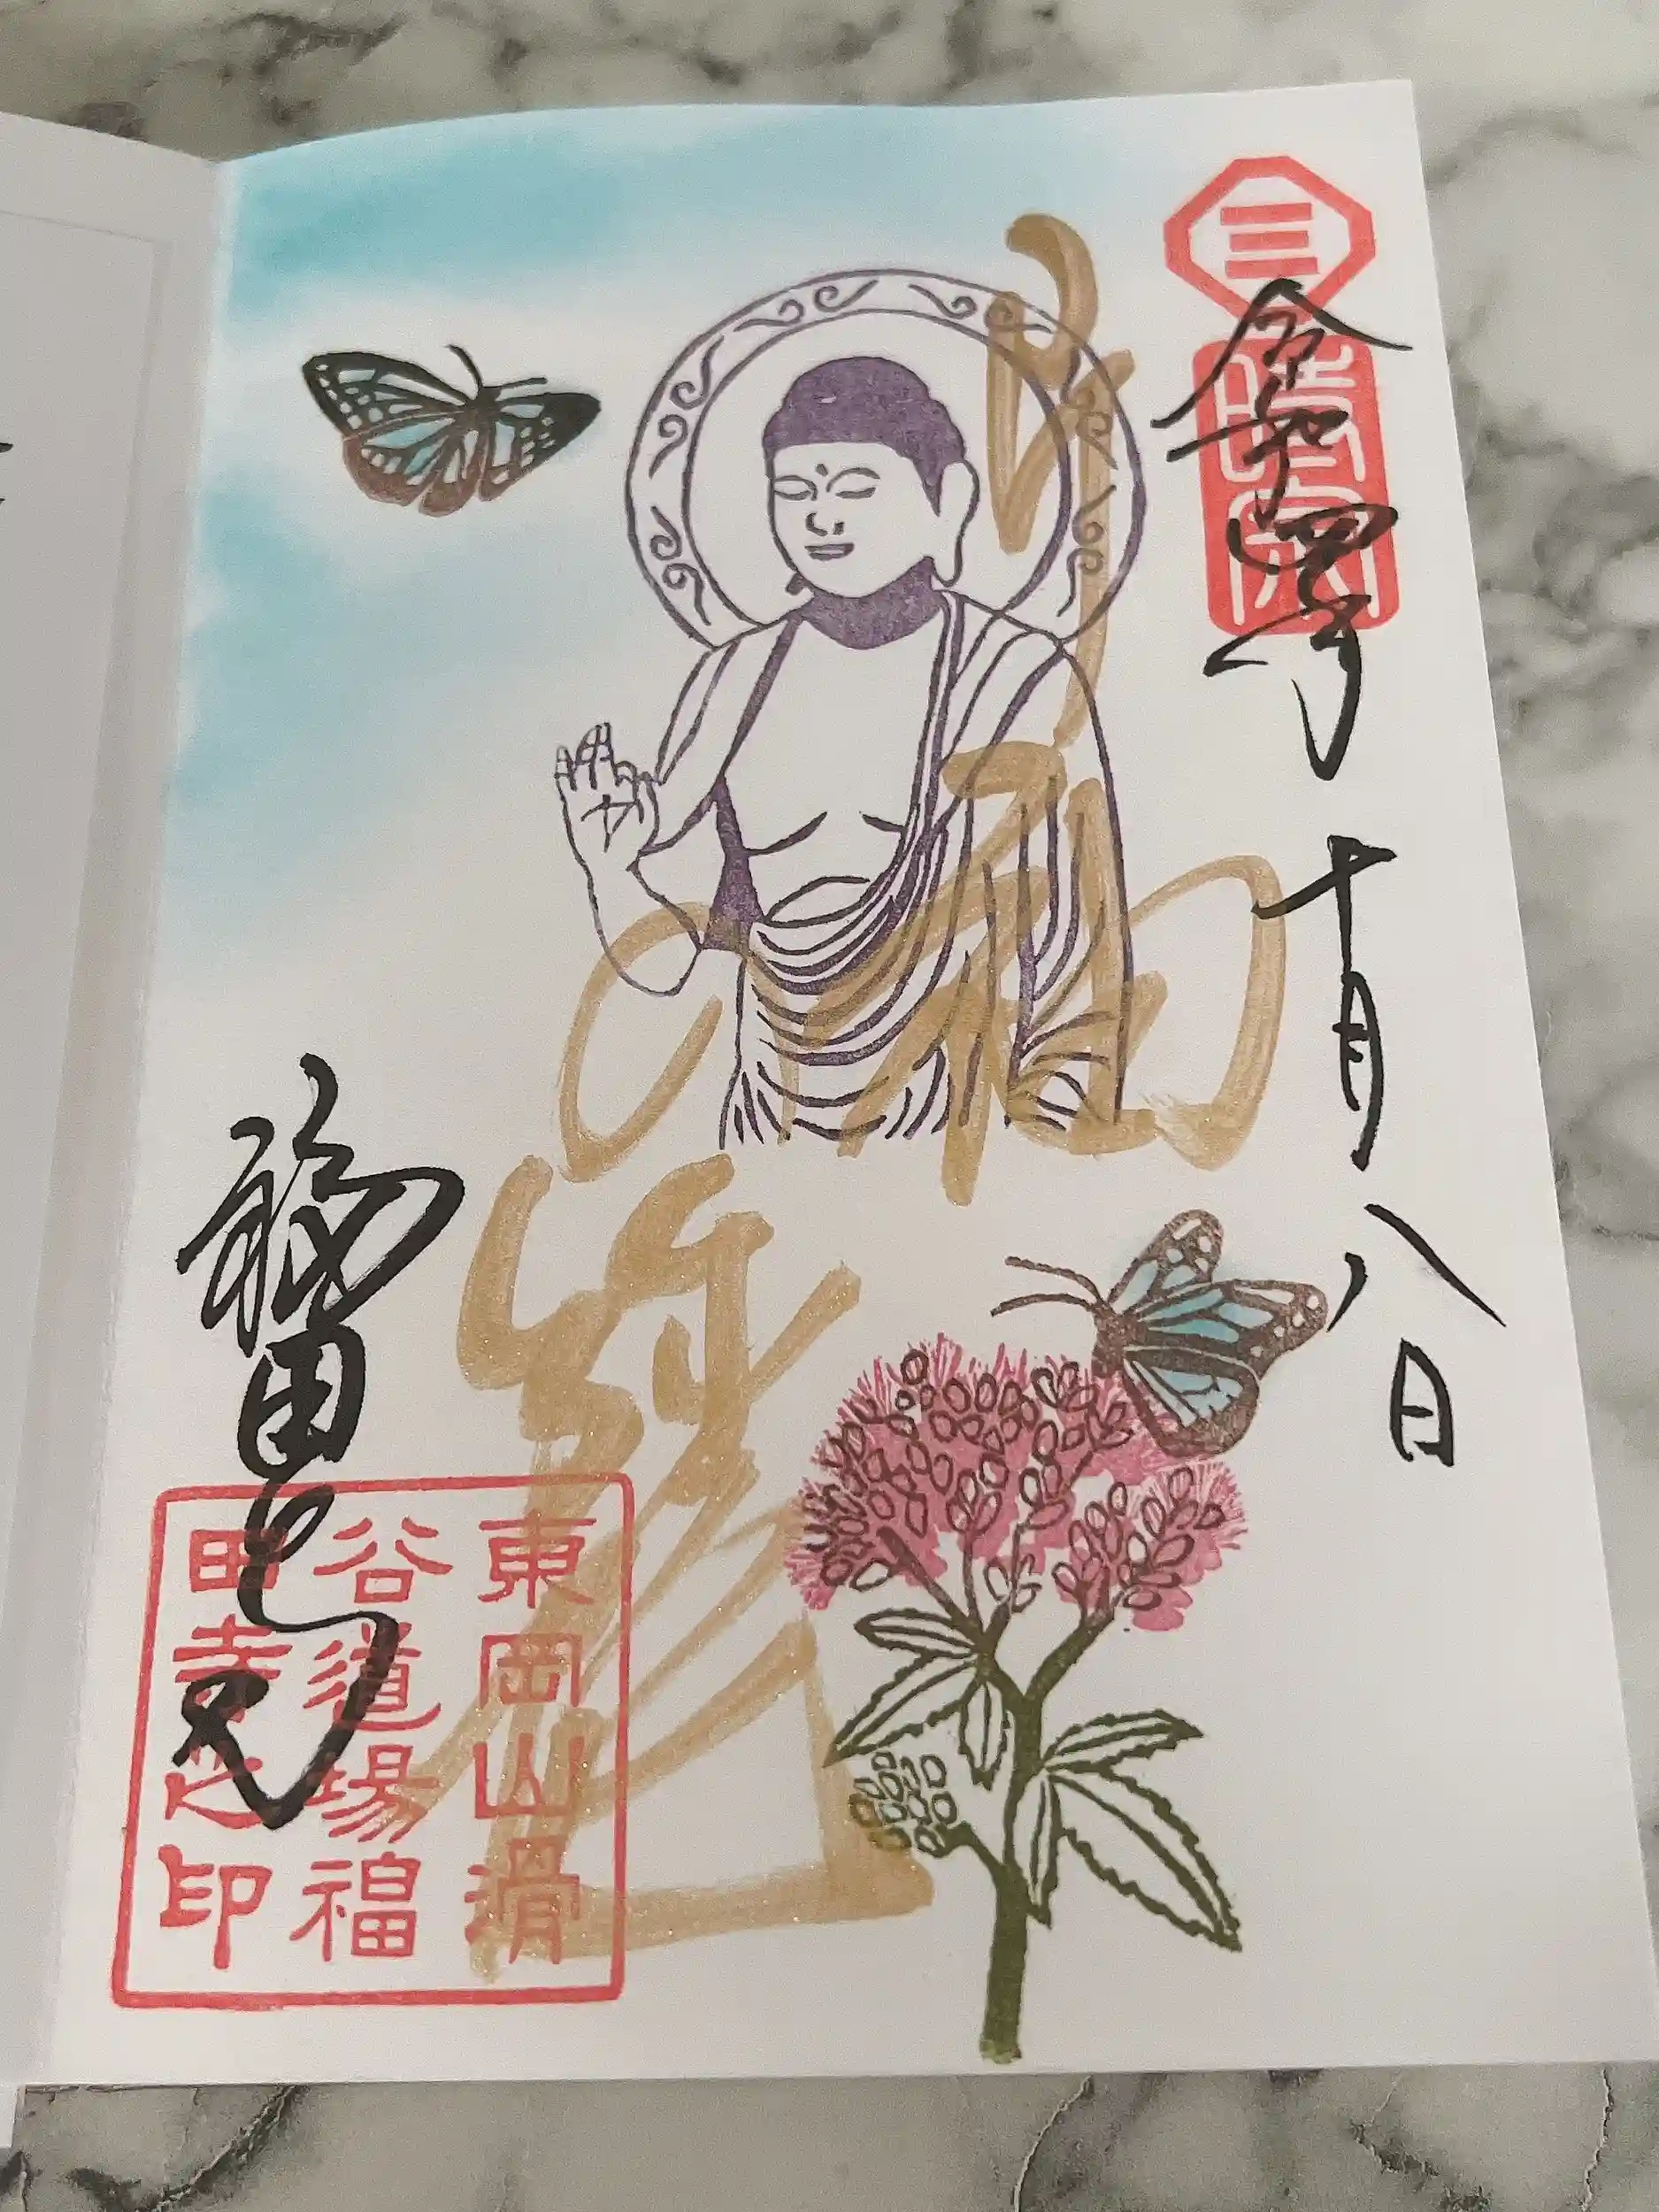 三
時宗
令和四年
十月八日
福田寺
東岡山滑
谷道場福
田寺之印